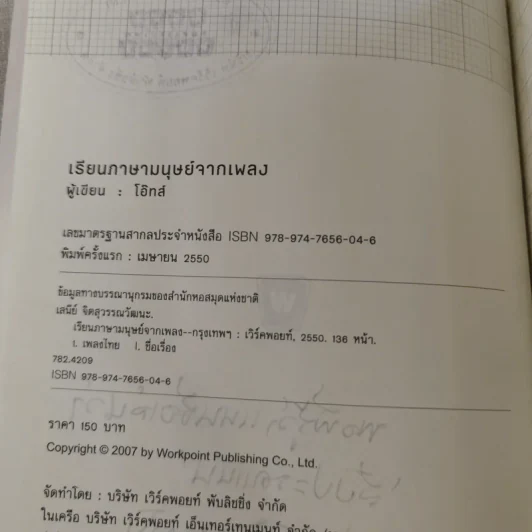 เรียนภาษามนุษย์จากเพลง
ผู้เขียน : โอ๊ทส์
เลขมาตรฐานสากลประจำหนังสือ ISBN 978-974-7656-04-6
พิมพ์ครั้งแรก : เมษายน 2550
ข้อมูลทางบรรณานุกรมของสำนักหอสมุดแห่งชาติ
เสนีย์ จิตสุวรรณวัฒนะ.
เรียนภาษามนุษย์จากเพลง--กรุงเทพฯ : เวิร์คพอยท์, 2550. 136 หน้า.
1. เพลงไทย I. ชื่อเรื่อง
782.4209
ISBN 978-974-7656-04-6
ราคา 150 บาท
Copyright © 2007 by Workpoint Publishing Co., Ltd.
จัดทำโดย : บริษัท เวิร์คพอยท์ พับลิชชิ่ง จำกัด
ในเครือ บริษัท เวิร์คพอยท์ เอ็นเทอร์เทนเมนท์ จำกัด